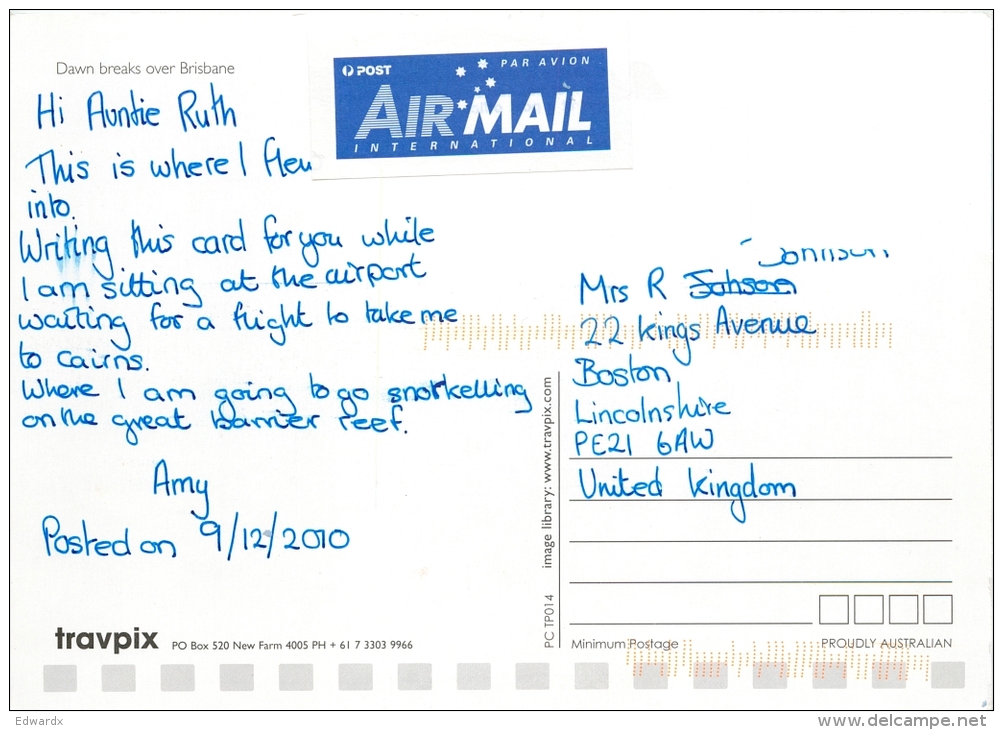 Dawn breaks over Brisbane
POST
PAR AVION
AIR MAIL
INTERNATIONAL
Hi Auntie Ruth
This is where I flew
into.
Writing this card for you while
I am sitting at the airport
waiting for a flight to take me
to Cairns.
Where I am going to go snorkelling
on the great barrier reef.
Amy
Posted on 9/12/2010
Mrs R Johson
22 kings Avenue
Boston
Lincolnshire
PE21 6AW
United Kingdom
image library: www.travpix.com
PC TP014
travpix PO Box 520 New Farm 4005 PH + 61 7 3303 9966
Minimum Postage
PROUDLY AUSTRALIAN
Edwardx
www.delcampe.net